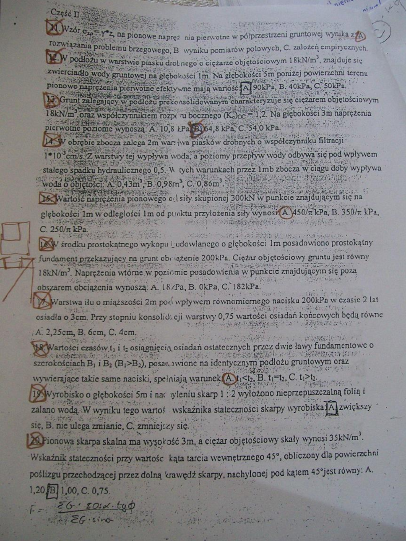 Część II
11. Wzór σzρ = γ*z, na pionowe napręż nia pierwotne w półprzestrzeni gruntowej wynika z A
rozwiązania problemu brzegowego, B wyniku pomiarów polowych, C. założeń empirycznych.
W podłożu w warstwie piasku drobnego o ciężarze objętościowym 18kN/m³, znajduje się
zwierciadło wody gruntowej na głębokości 1m. Na głębokości 5m poniżej powierzchni terenu
pionowe naprężenia pierwotne efektywne mają wartość A 90kPa, B. 40kPa, C. 50kPa.
Grunt zalegający w podłożu prekonsolidowanym charakteryzuje się ciężarem objętościowym
18kN/m³, oraz współczynnikiem rozpo ru bocznego (K₀)oc = 1,2. Na głębokości 3m naprężenia
pierwotne poziome wynoszą, A. 10,8 kPa, B. 64,8 kPa, C. 54,0 kPa.
14. W obrębie zbocza zalega 2m warstwa piasków drobnych o współczynniku filtracji
1*10⁻⁴cm/s. Z warstwy tej wypływa woda, a poziomy przepływ wody odbywa się pod wpływem
stałego spadku hydraulicznego 0,5. W tych warunkach przez 1mb zbocza w ciągu doby wypływa
woda o objętości, A. 0,43m³, B. 0,98m³, C. 0,86m³.
Wartość naprężenia pionowego od siły skupionej 300kN w punkcie znajdującym się na
głębokości 1m w odległości 1m od punktu przyłożenia siły wynosi A 450/π kPa, B. 350/π kPa,
C. 250/π kPa.
W środku prostokątnego wykopu o głębokości 1m posadowiono prostokątny
fundament przekazujący na grunt obciążenie 200kPa. Ciężar objętościowy gruntu jest równy
18kN/m³. Naprężenia wtórne w poziomie posadowienia w punkcie znajdującym się poza
obszarem obciążenia wynoszą: A. 18kPa, B. 0kPa, C. 182kPa.
Warstwa iłu o miąższości 2m pod wpływem równomiernego nacisku 200kPa w czasie 2 lat
osiadła o 3cm. Przy stopniu konsolidacji warstwy 0,75 wartości osiadań końcowych będą równe
A. 2,25cm, B. 6cm, C. 4cm.
18. Wartości czasów t₁ i t₂ osiągnięcia osiadań ostatecznych przez dwie ławy fundamentowe o
szerokościach B₁ i B₂ (B₁>B₂), posadowione na identycznym podłożu gruntowym oraz
wywierające takie same naciski, spełniają warunek A t₁<t₂, B. t₁=t₂, C. t₁>t₂.
19. Wyrobisko o głębokości 5m i nachyleniu skarp 1 : 2 wyłożono nieprzepuszczalną folią i
zalano wodą. W wyniku tego wartość wskaźnika stateczności skarpy wyrobiska A zwiększy
się, B. nie ulegnie zmianie, C. zmniejszy się.
20. Pionowa skarpa skalna ma wysokość 3m, a ciężar objętościowy skały wynosi 35kN/m³.
Wskaźnik stateczności przy wartości kąta tarcia wewnętrznego 45°, obliczony dla powierzchni
poślizgu przechodzącej przez dolną krawędź skarpy, nachylonej pod kątem 45° jest równy: A.
1,20, B 1,00, C. 0,75.
F = ΣG · cosα · tgφ
ΣG · sinα